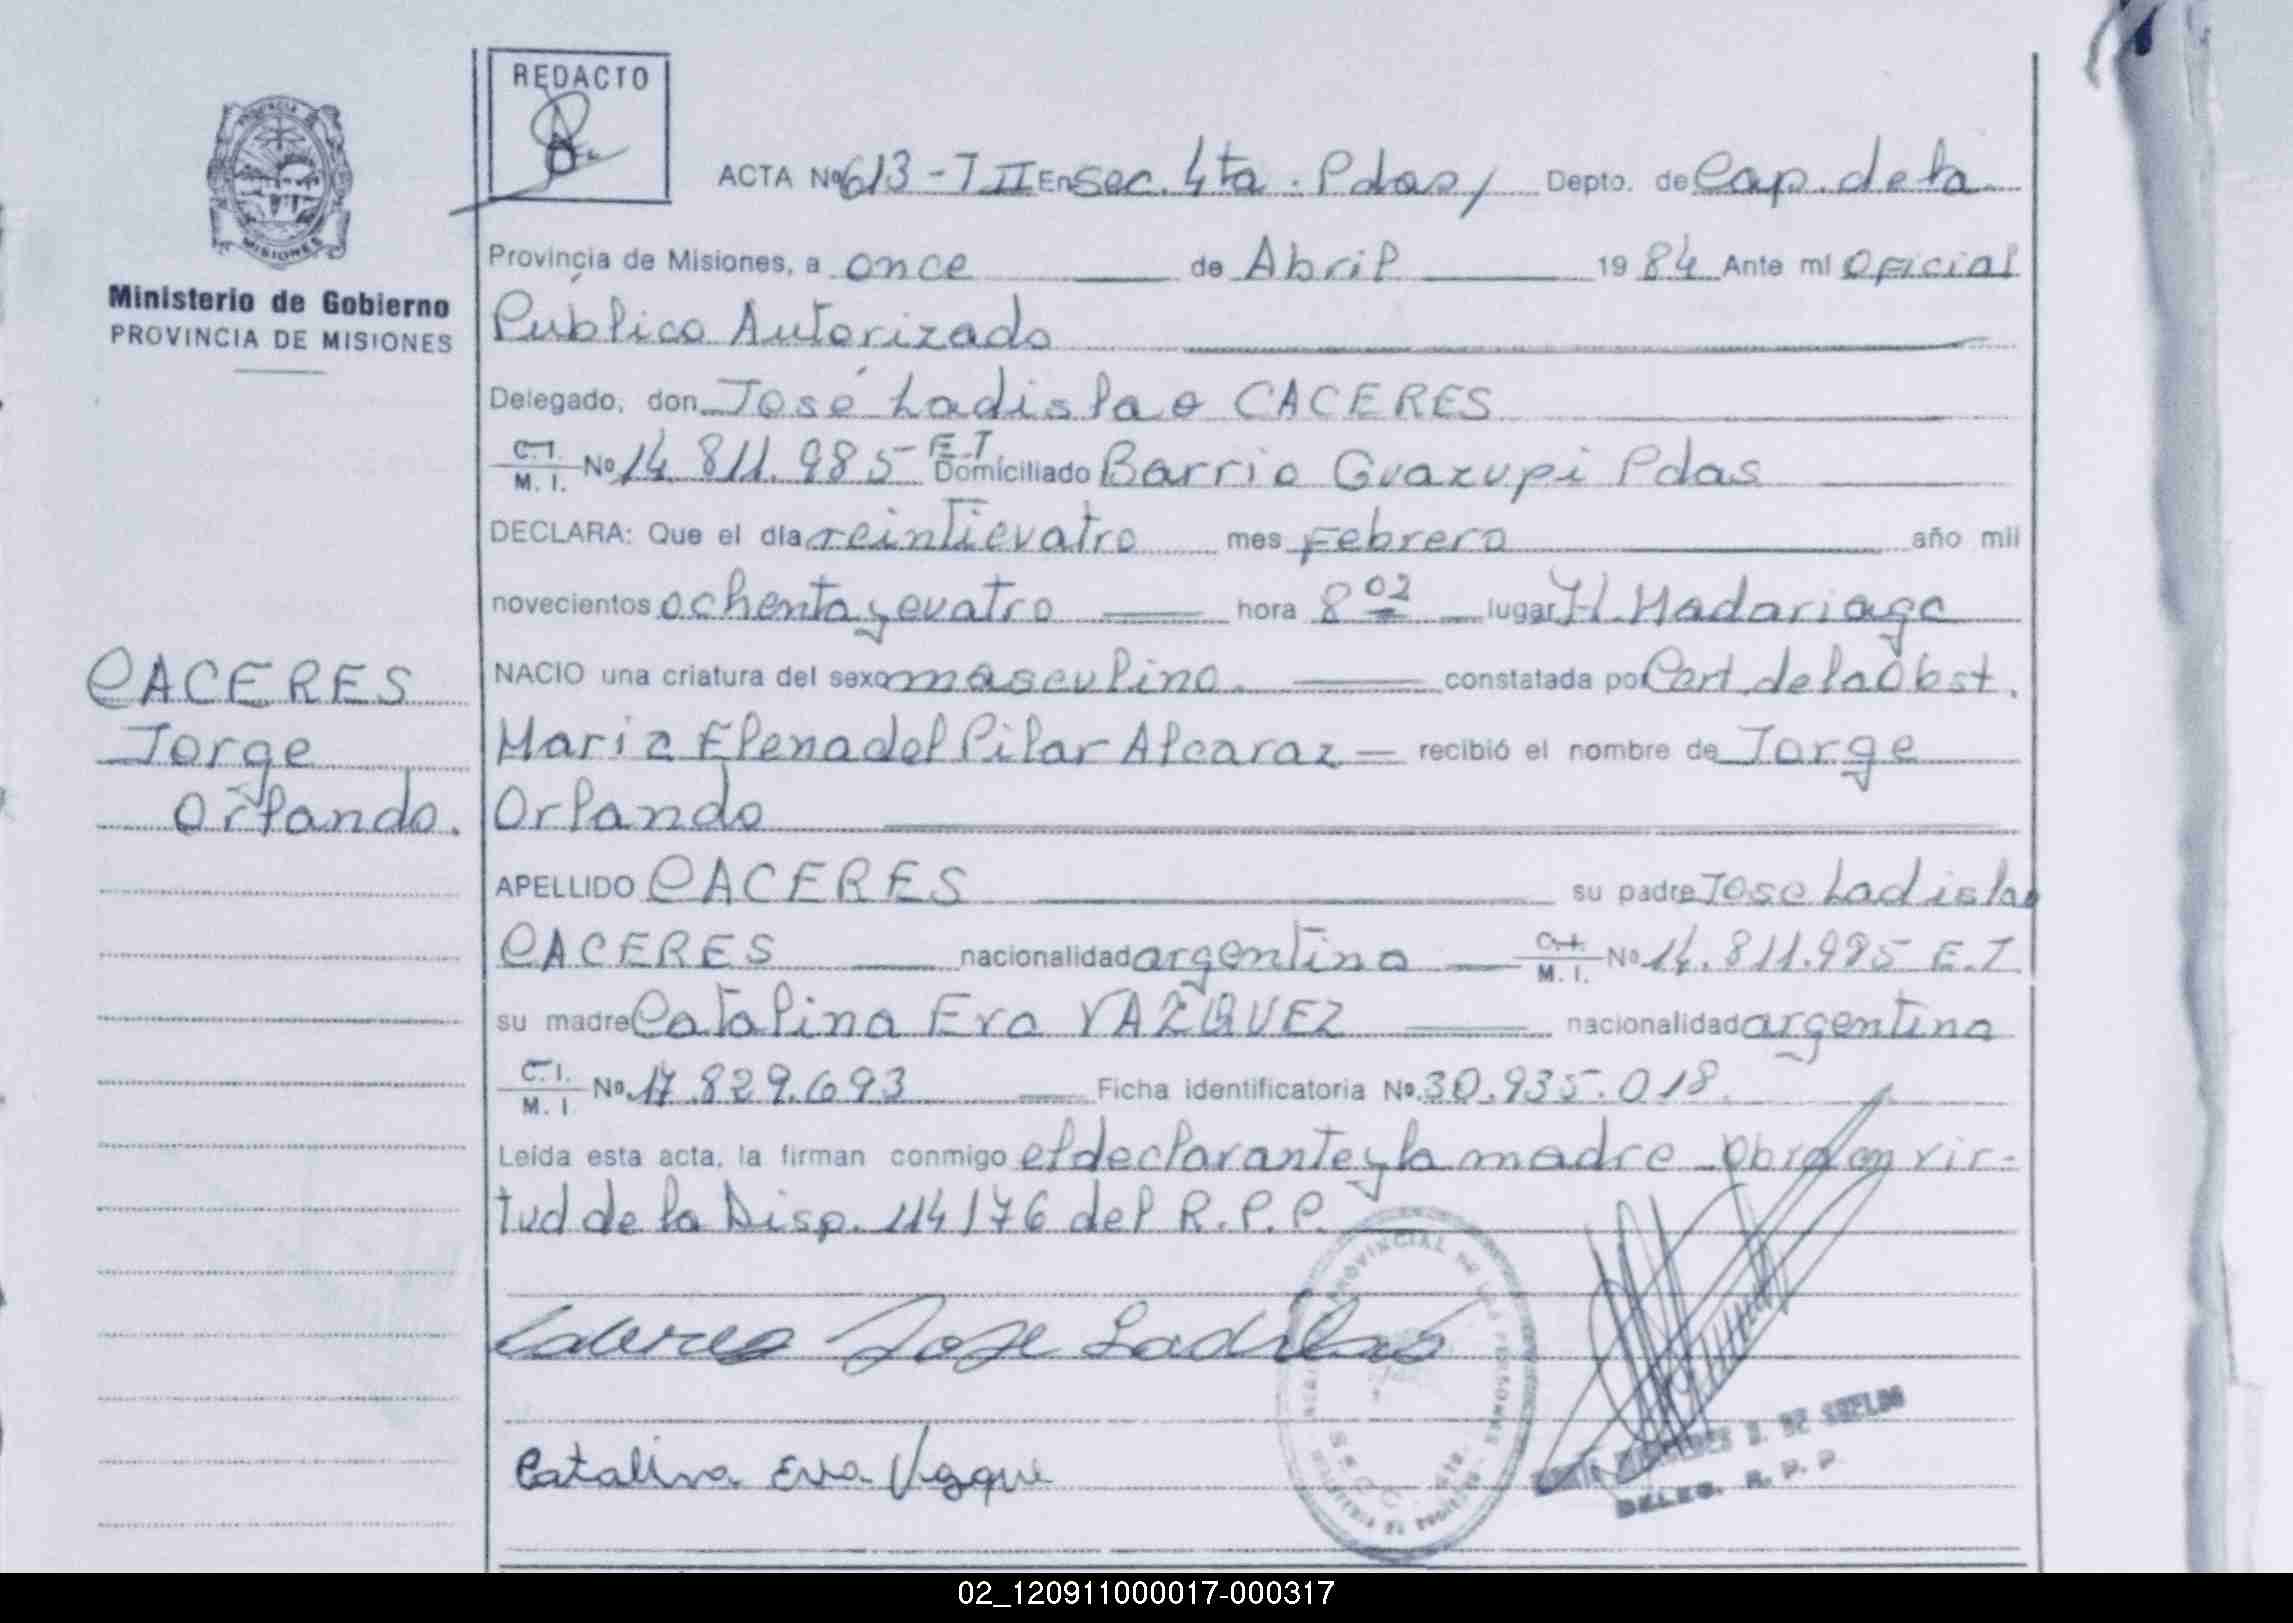 REDACTO
ACTA Nº 613 - T II En Sec. 4ta. Pdas, Depto. de Cap. de la
Provincia de Misiones, a once de Abril 19 84 Ante mí Oficial
Ministerio de Gobierno
PROVINCIA DE MISIONES
Público Autorizado
Delegado, don José Ladislao CACERES
C. I. M. I. Nº 14.811.985 E.T. Domiciliado Barrio Guazupi Pdas
DECLARA: Que el día veinticuatro mes Febrero año mil
novecientos ochenta y cuatro hora 8 02 lugar H. Madariaga
CACERES
Jorge
Orlando.
NACIO una criatura del sexo masculino. constatada por Cert. de la Obst.
Maria Elena del Pilar Alcaraz — recibió el nombre de Jorge
Orlando
APELLIDO CACERES su padre Jose Ladislao
CACERES nacionalidad argentino C. I. M. I. Nº 14.811.985 E.T
su madre Catalina Eva VAZQUEZ nacionalidad argentina
C. I. M. I Nº 17.829.693 Ficha identificatoria Nº 30.935.018.
Leída esta acta, la firman conmigo el declarante y la madre obra en vir-
tud de la Disp. 114/76 del R.P.P.
Caceres Jose Ladislao
Catalina Eva Vazque
DE SUELDO
DELEG. R. P. P.
02_120911000017-000317